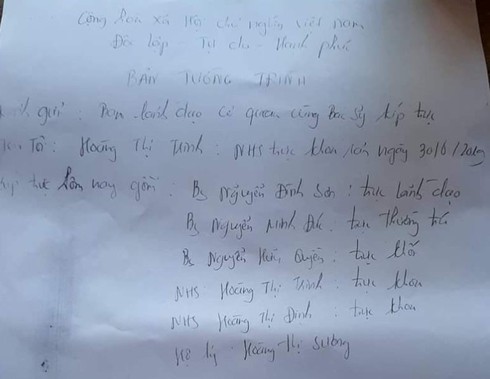 Cộng hòa xã hội chủ nghĩa việt nam
Độc lập - Tự do - Hạnh phúc
BẢN TƯỜNG TRÌNH
gửi : Ban lãnh đạo cơ quan cùng Bác sỹ kíp trực
Tên Tôi : Hoàng Thị Trinh : NHS trực khoa sản ngày 30/6/2019
kíp trực hôm nay gồm : Bs Nguyễn Đình Sơn : trực lãnh đạo
Bs Nguyễn Minh Đức : trực thường trú
Bs Nguyễn Hữu Quyền : trực khối
NHS Hoàng Thị Trinh : trực khoa
NHS Hoàng Thị Định : trực khoa
Hộ lý : Hoàng Thị Sương